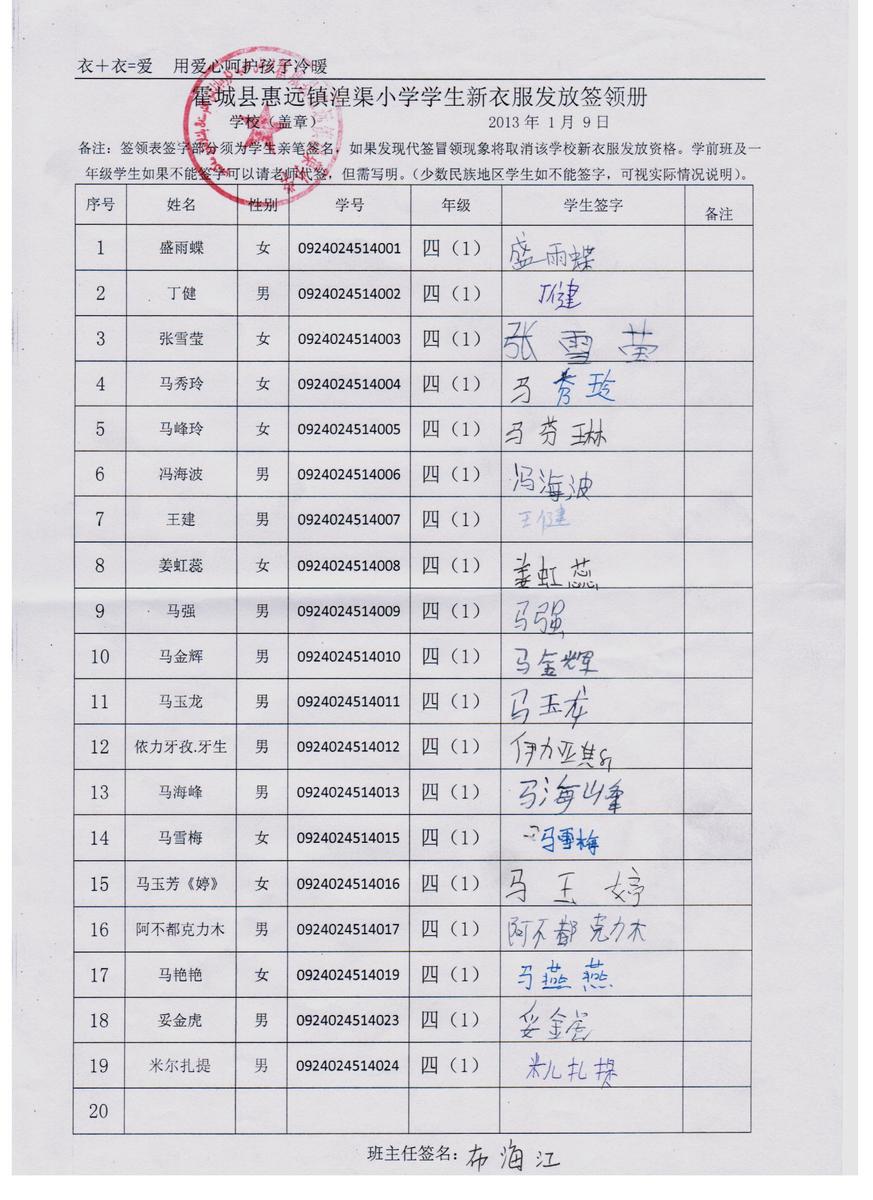 衣＋衣=爱 用爱心呵护孩子冷暖
霍城县惠远镇湟渠小学学生新衣服发放签领册
学校（盖章） 2013 年 1 月 9 日
备注：签领表签字部分须为学生亲笔签名，如果发现代签冒领现象将取消该学校新衣服发放资格。学前班及一
年级学生如果不能签字可以请老师代签，但需写明。（少数民族地区学生如不能签字，可视实际情况说明）。
序号 姓名 性别 学号 年级 学生签字 备注
1 盛雨蝶 女 0924024514001 四（1） 盛雨蝶
2 丁健 男 0924024514002 四（1） 丁健
3 张雪莹 女 0924024514003 四（1） 张雪莹
4 马秀玲 女 0924024514004 四（1） 马秀玲
5 马峰玲 女 0924024514005 四（1） 马芬琳
6 冯海波 男 0924024514006 四（1） 冯海波
7 王建 男 0924024514007 四（1） 王健
8 姜虹蕊 女 0924024514008 四（1） 姜虹蕊
9 马强 男 0924024514009 四（1） 马强
10 马金辉 男 0924024514010 四（1） 马金辉
11 马玉龙 男 0924024514011 四（1） 马玉龙
12 依力牙孜.牙生 男 0924024514012 四（1） 伊力亚
13 马海峰 男 0924024514013 四（1） 马海峰
14 马雪梅 女 0924024514015 四（1） 马雪梅
15 马玉芳《婷》 女 0924024514016 四（1） 马玉婷
16 阿不都克力木 男 0924024514017 四（1） 阿不都克力木
17 马艳艳 女 0924024514019 四（1） 马燕燕
18 妥金虎 男 0924024514023 四（1） 妥金虎
19 米尔扎提 男 0924024514024 四（1） 米儿扎提
20
班主任签名：布海江